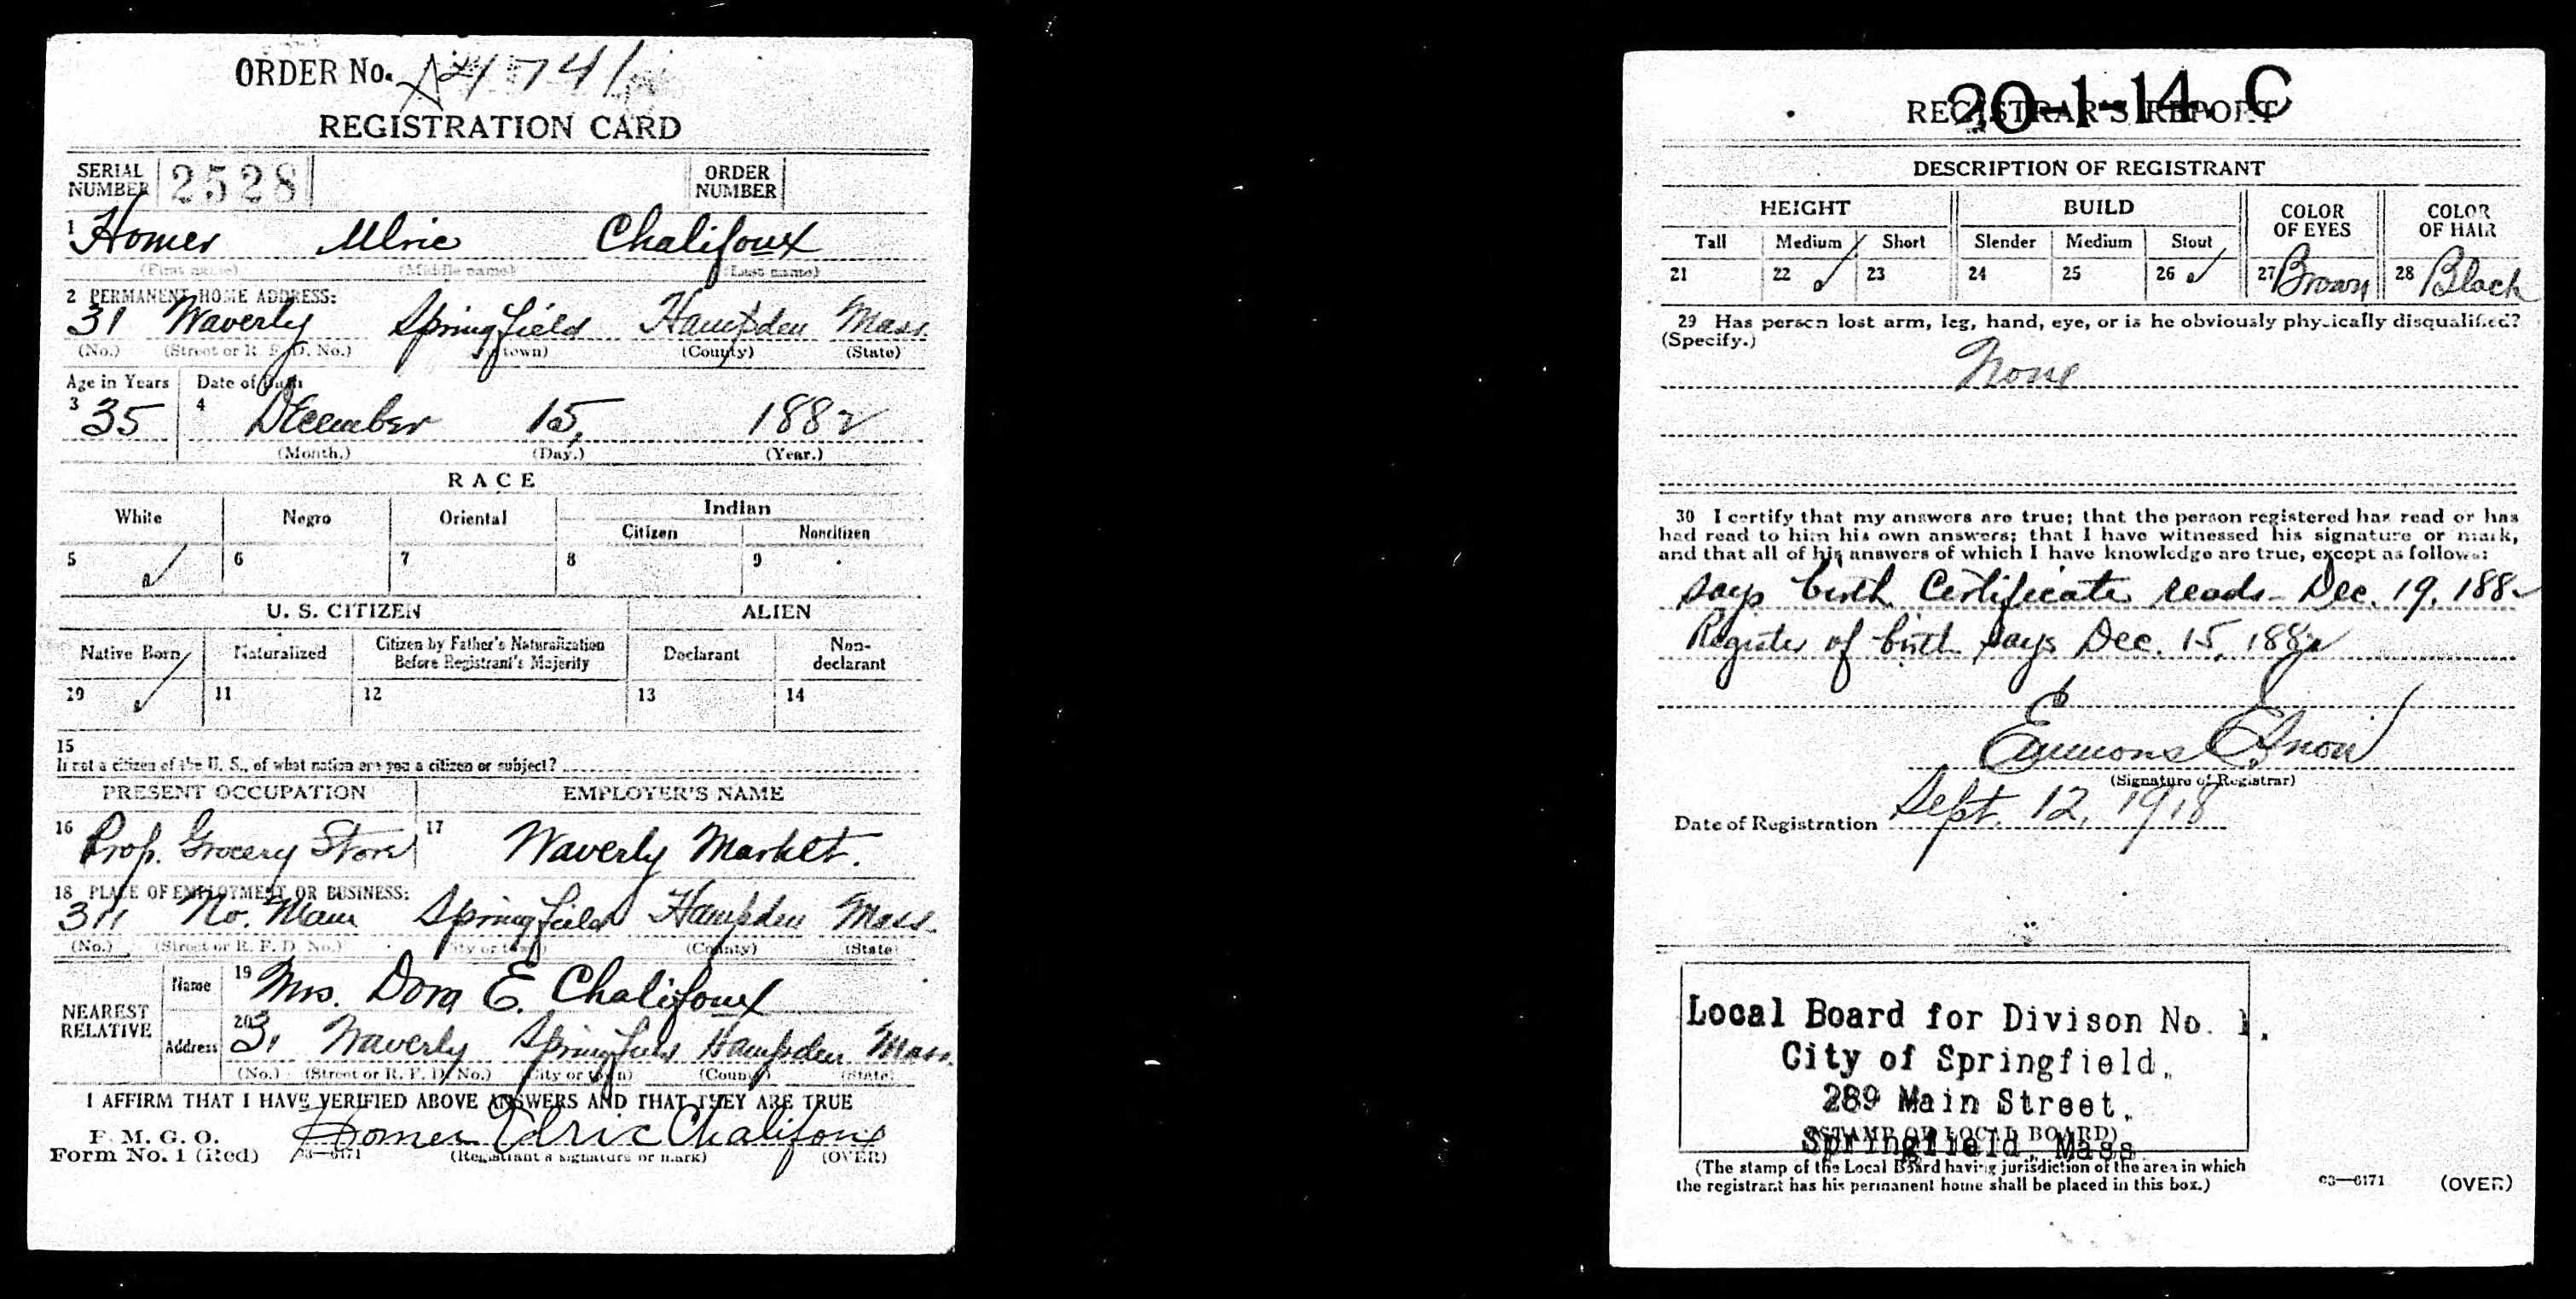 ORDER No. A4741
REGISTRATION CARD
SERIAL NUMBER 2528 ORDER NUMBER
1 Homer Ulric Chalifoux
(First name) (Middle name) (Last name)
2 PERMANENT HOME ADDRESS:
31 Waverly Springfield Hampden Mass.
(No.) (Street or R. F. D. No.) town) (County) (State)
Age in Years Date of Birth
3 35 4 December 15, 1882
(Month.) (Day.) (Year.)
RACE
White Negro Oriental Indian
Citizen Noncitizen
5 ✓ 6 7 8 9
U. S. CITIZEN ALIEN
Native Born Naturalized Citizen by Father's Naturalization Before Registrant's Majority Declarant Non-declarant
10 ✓ 11 12 13 14
15
If not a citizen of the U. S., of what nation are you a citizen or subject?
PRESENT OCCUPATION EMPLOYER'S NAME
16 Prop. Grocery Store 17 Waverly Market.
18 PLACE OF EMPLOYMENT OR BUSINESS:
311 No. Main Springfield Hampden Mass.
(No.) (Street or R. F. D. No.) (City or town) (County) (State)
NEAREST RELATIVE Name 19 Mrs. Dora E. Chalifoux
Address 20 31 Waverly Springfield Hampden Mass.
(No.) (Street or R. F. D. No.) (City or town) (County) (State)
I AFFIRM THAT I HAVE VERIFIED ABOVE ANSWERS AND THAT THEY ARE TRUE
P. M. G. O.
Form No. 1 (Red) 03—6171 Homer Ulric Chalifoux
(Registrant's signature or mark) (OVER)
20-1-14 C
REGISTRAR'S REPORT
DESCRIPTION OF REGISTRANT
HEIGHT BUILD COLOR OF EYES COLOR OF HAIR
Tall Medium Short Slender Medium Stout
21 22 ✓ 23 24 25 26 ✓ 27 Brown 28 Black
29 Has person lost arm, leg, hand, eye, or is he obviously physically disqualified?
(Specify.)
None
30 I certify that my answers are true; that the person registered has read or has
had read to him his own answers; that I have witnessed his signature or mark,
and that all of his answers of which I have knowledge are true, except as follows:
says birth Certificate reads - Dec. 19, 1882
Register of birth says Dec. 15, 1882
Emmons E. Snow
(Signature of Registrar)
Date of Registration Sept. 12, 1918
Local Board for Divison No. 1,
City of Springfield,
289 Main Street,
Springfield, Mass
(STAMP OF LOCAL BOARD)
(The stamp of the Local Board having jurisdiction of the area in which
the registrant has his permanent home shall be placed in this box.)
03—6171 (OVER)